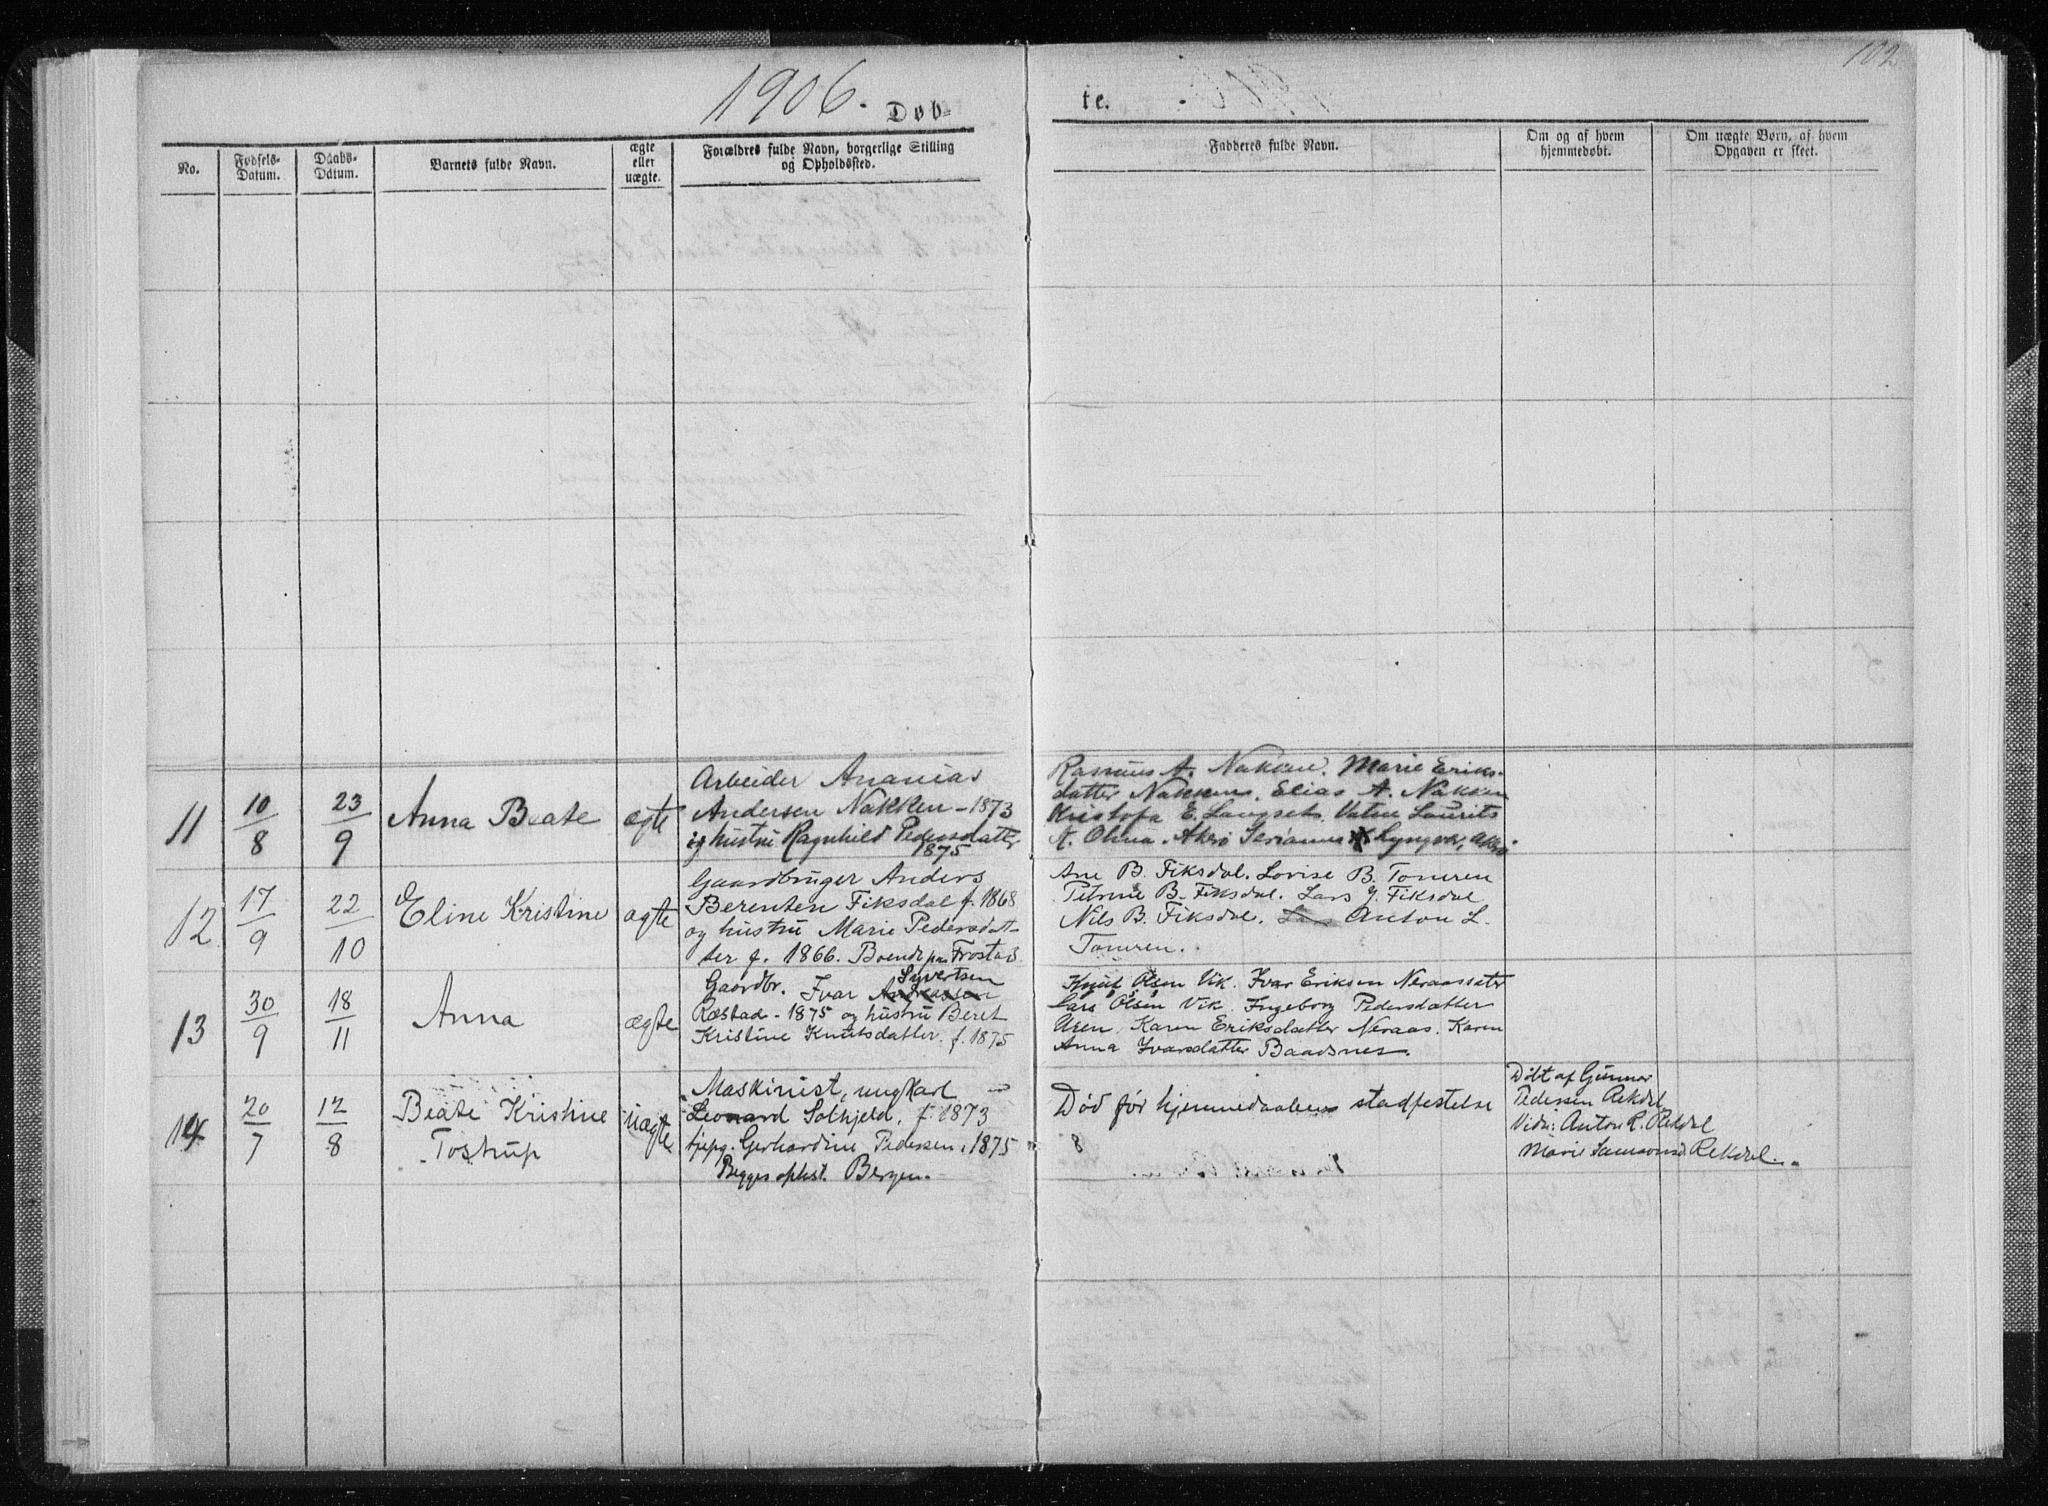 1906. Døb-
te.
102
No.
Fødsels-
Datum.
Daabs-
Datum.
Barnets fulde Navn.
ægte
eller
uægte.
Forældres fulde Navn, borgerlige Stilling
og Opholdssted.
Fadderes fulde Navn.
Om og af hvem
hjemmedøbt.
Om uægte Børn, af hvem
Opgaven er skeet.
11
10/8
23/9
Anna Beate
ægte
Arbeider Ananias
Andersen Nakken - 1873
og hustru Ragnhild Pedersdatter
1875
Rasmus A. Nakken. Marie Eriks-
datter Nakken. Elias A. Nakken
Kristofa E. Langset. Vatne Laurits
A. Olina. Akerø Lyngvær, Akerø
12
17/9
22/10
Eline Kristine
ægte
Gaardbruger Anders
Berenten Fiksdal f. 1868
og hustru Marie Pedersdat-
ter f. 1866. Boende paa Frostad
Ane B. Fiksdal. Lovise B. Tomren
Petrine B. Fiksdal. Lars J. Fiksdal
Nils B. Fiksdal. Lars Anton L.
Tomren.
13
30/9
18/11
Anna
ægte
Syvertsen
Gaardbr. Ivar Andreassen
Røstad - 1875 og hustru Beret
Kristine Knutsdatter. f. 1875
Knut Olsen Vik. Ivar Eriksen Neraassæter
Lars Olsen Vik. Ingeborg Pedersdatter
Aren. Karen Eriksdatter Neraas. Karen
Anna Ivarsdatter Baadsnes.
14
20/7
12/8
Beate Kristine
Tostrup
uægte
Maskinist, ungkarl
Leonard Solhjeld, f. 1873
tjepg. Gerhardine Pedersen, 1875
Begges ophst. Bergen.
Død før hjemmedaabens stadfestelse
8
Døbt af Gunnar
Pedersen Rekdal
Vidn: Anton R. Rekdal
Marie Samsonsd Rekdal.